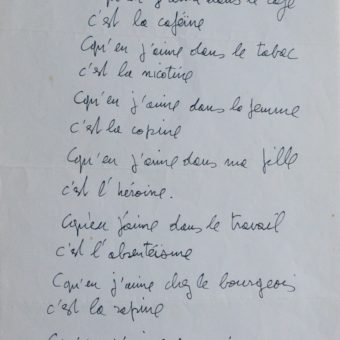 j'aime dans le café
c'est la caféine
Cqu'en j'aime dans le tabac
c'est la nicotine
Cqu'en j'aime dans la femme
c'est la copine
Cqu'en j'aime dans ma fille
c'est l'héroine.
Cqu'en j'aime dans le travail
c'est l'absentéisme
Cqu'en j'aime chez le bourgeois
c'est la rapine